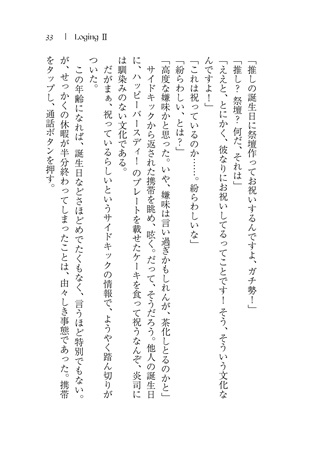 33 ｜ Loging Ⅱ
「推しの誕生日に祭壇作ってお祝いするんですよ、ガチ勢！」
「推し？ 祭壇？ 何だ、それは」
「ええと、とにかく、彼なりにお祝いしてるってことです！ そう、そういう文化な
んですよ！」
「これは祝っているのか……。紛らわしいな」
「紛らわしい、とは？」
「高度な嫌味かと思った。いや、嫌味は言い過ぎかもしれんが、茶化しとるのかと」
サイドキックから返された携帯を眺め、呟く。だって、そうだろう。他人の誕生日
に、ハッピーバースディ！ のプレートを載せたケーキを食って祝うなんぞ、炎司に
は馴染みのない文化である。
だがまぁ、祝っているらしいというサイドキックの情報で、ようやく踏ん切りが
ついた。
この年齢になれば、誕生日などさほどめでたくもなく、言うほど特別でもない。
が、せっかくの休暇が半分終わってしまったことは、由々しき事態であった。携帯
をタップし、通話ボタンを押す。